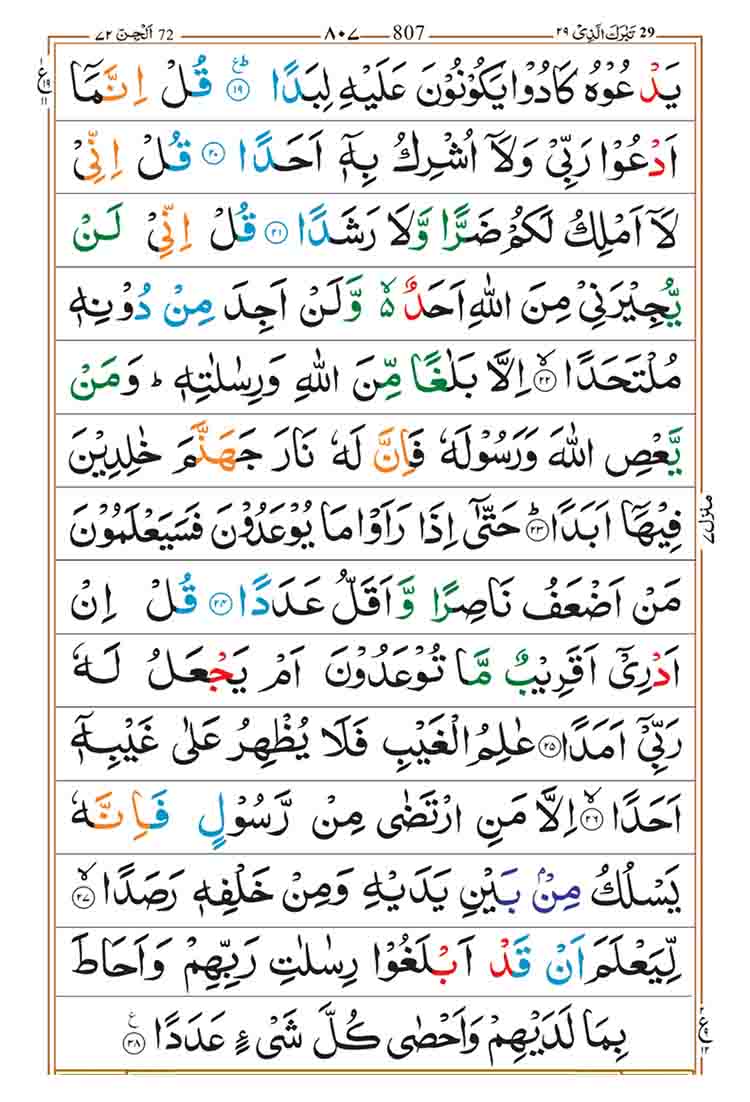 29 تَبٰرَكَ الَّذِیْ ۲۹ 807 ۸۰۷ 72 اَلْجِنّ ۷۲
یَدْعُوْهُ كَادُوْا یَكُوْنُوْنَ عَلَیْهِ لِبَدًا ۱۹ قُلْ اِنَّمَاۤ
اَدْعُوْا رَبِّیْ وَلَاۤ اُشْرِكُ بِهٖۤ اَحَدًا ۲۰ قُلْ اِنِّیْ
لَاۤ اَمْلِكُ لَكُمْ ضَرًّا وَّلَا رَشَدًا ۲۱ قُلْ اِنِّیْ لَنْ
یُّجِیْرَنِیْ مِنَ اللّٰهِ اَحَدٌ ۵ۙ وَّلَنْ اَجِدَ مِنْ دُوْنِهٖ
مُلْتَحَدًا ۲۲ۙ اِلَّا بَلٰغًا مِّنَ اللّٰهِ وَرِسٰلٰتِهٖ ؕ وَمَنْ
یَّعْصِ اللّٰهَ وَرَسُوْلَهٗ فَاِنَّ لَهٗ نَارَ جَهَنَّمَ خٰلِدِیْنَ
فِیْهَاۤ اَبَدًا ۲۳ؕ حَتّٰۤی اِذَا رَاَوْا مَا یُوْعَدُوْنَ فَسَیَعْلَمُوْنَ
مَنْ اَضْعَفُ نَاصِرًا وَّاَقَلُّ عَدَدًا ۲۴ قُلْ اِنْ
اَدْرِیْۤ اَقَرِیْبٌ مَّا تُوْعَدُوْنَ اَمْ یَجْعَلُ لَهٗ
رَبِّیْۤ اَمَدًا ۲۵ عٰلِمُ الْغَیْبِ فَلَا یُظْهِرُ عَلٰی غَیْبِهٖۤ
اَحَدًا ۲۶ۙ اِلَّا مَنِ ارْتَضٰی مِنْ رَّسُوْلٍ فَاِنَّهٗ
یَسْلُكُ مِنْۢ بَیْنِ یَدَیْهِ وَمِنْ خَلْفِهٖ رَصَدًا ۲۷ۙ
لِّیَعْلَمَ اَنْ قَدْ اَبْلَغُوْا رِسٰلٰتِ رَبِّهِمْ وَاَحَاطَ
بِمَا لَدَیْهِمْ وَاَحْصٰی كُلَّ شَیْءٍ عَدَدًا ۲۸
منزل ۷
ع ۱۹ ۱۱
ع ۱۲